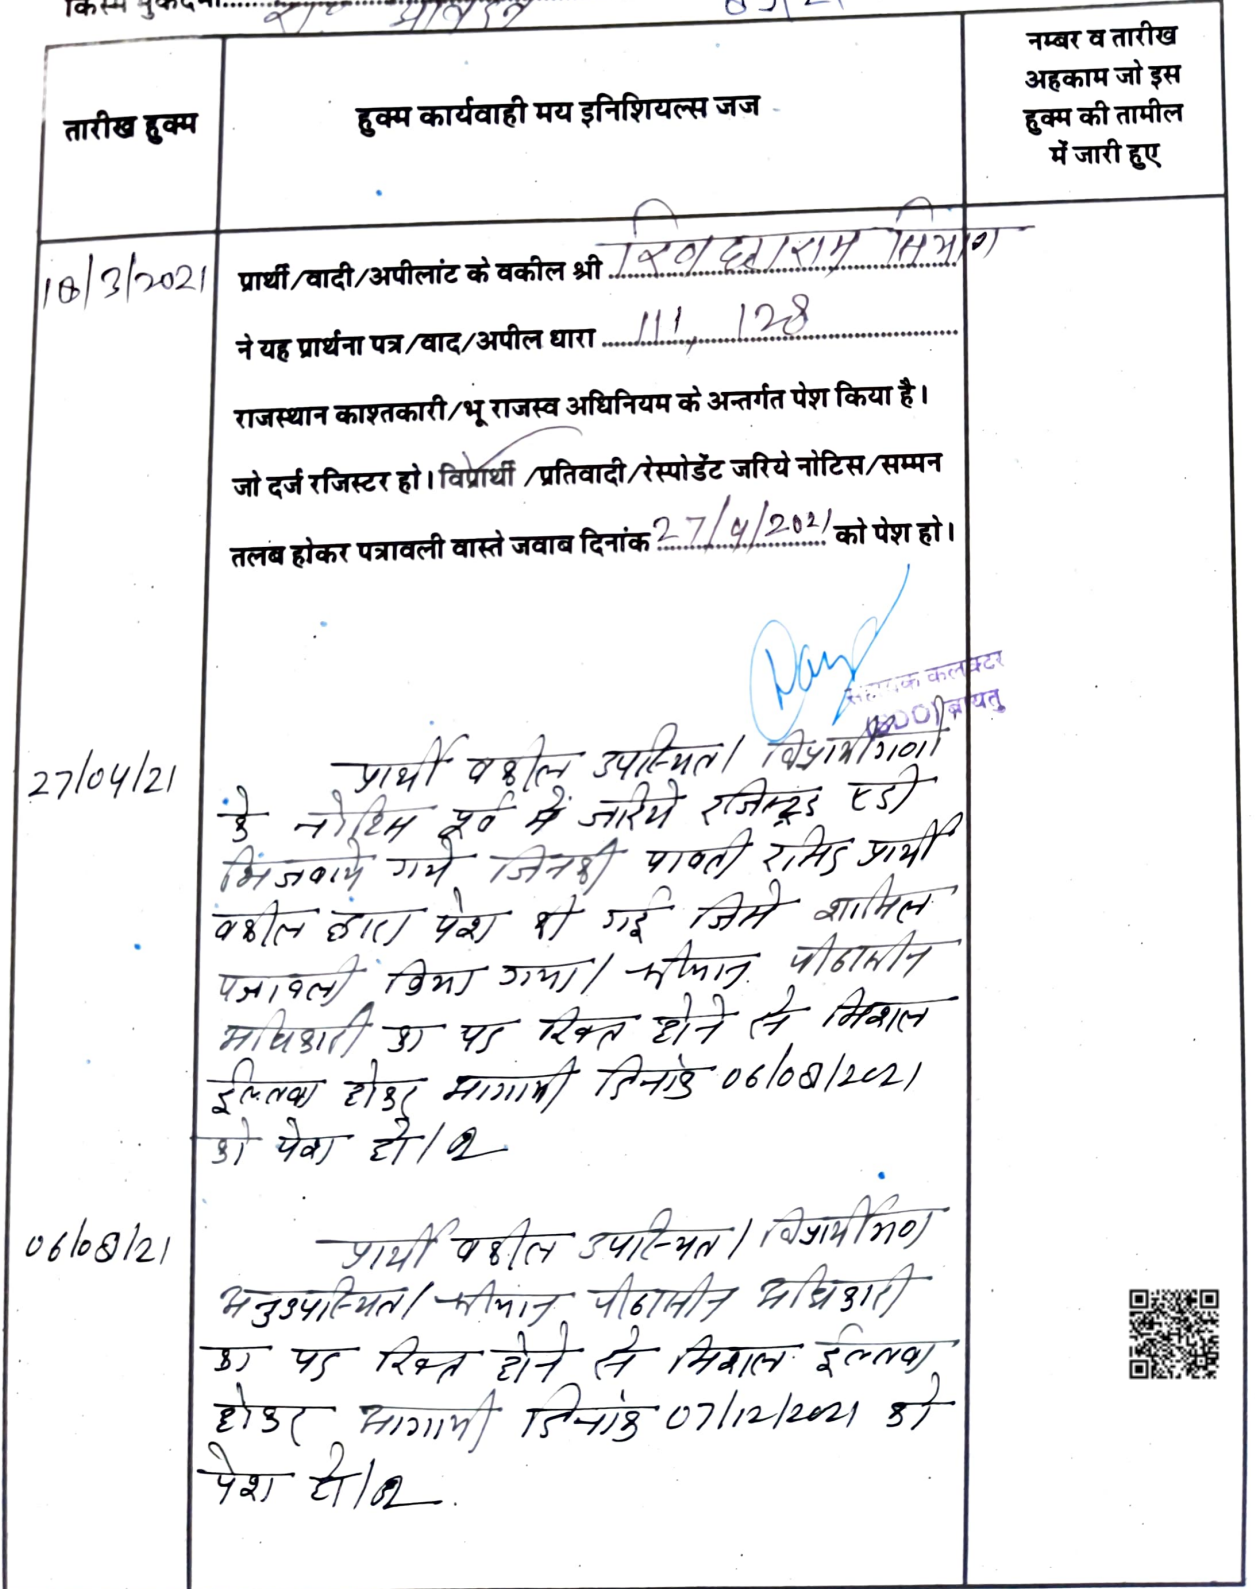 किस्म मुकदमा..........
तारीख हुक्म
हुक्म कार्यवाही मय इनिशियल्स जज
नम्बर व तारीख
अहकाम जो इस
हुक्म की तामील
में जारी हुए
18/3/2021
प्रार्थी/वादी/अपीलांट के वकील श्री
ने यह प्रार्थना पत्र/वाद/अपील धारा 111, 128
राजस्थान काश्तकारी/भू राजस्व अधिनियम के अन्तर्गत पेश किया है।
जो दर्ज रजिस्टर हो। विप्रार्थी/प्रतिवादी/रेस्पोडेंट जरिये नोटिस/सम्मन
तलब होकर पत्रावली वास्ते जवाब दिनांक 27/4/2021 को पेश हो।
सहायक कलक्टर
बायतु
27/04/21
प्रार्थी वकील उपस्थित। विप्रार्थीगणों
के नोटिस पूर्व में जरिये रजिस्ट्रड एडी
भिजवाये गये जिनकी पावती रसिद प्रार्थी
वकील द्वारा पेश की गई जिसे शामिल
पत्रावली किया गया। श्रीमान् पीठासीन
अधिकारी का पद रिक्त होने से मिशल
ईल्तवा होकर आगामी दिनांक 06/08/2021
को पेश हो।
06/08/21
प्रार्थी वकील उपस्थित। विप्रार्थीगण
अनुउपस्थित। श्रीमान् पीठासीन अधिकारी
का पद रिक्त होने से मिशल ईल्तवा
होकर आगामी दिनांक 07/12/2021 को
पेश हो।